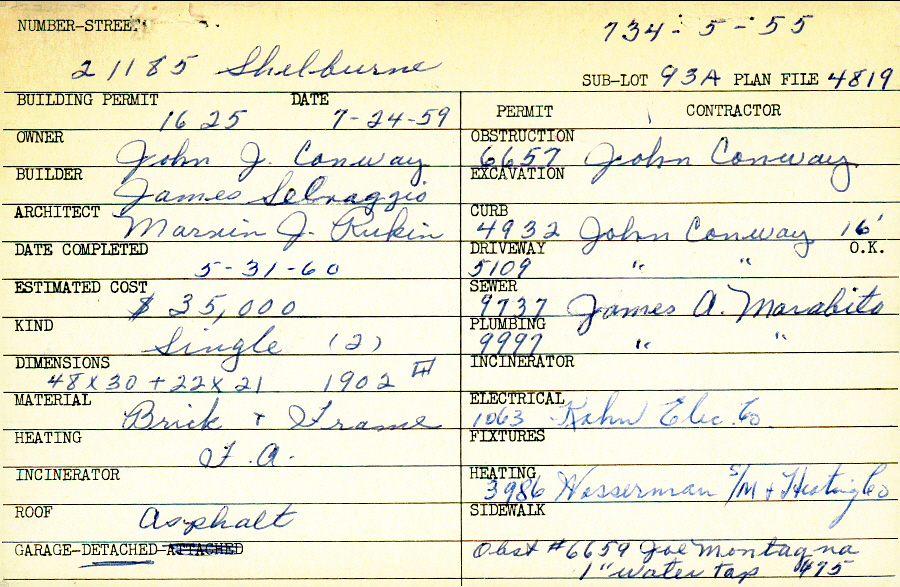 NUMBER-STREET
734-5-55
21185 Shelburne
SUB-LOT 93A PLAN FILE 4819
BUILDING PERMIT DATE
1625 7-24-59
OWNER
John J. Conway
BUILDER
James Selvaggio
ARCHITECT
Marvin J. Rukin
DATE COMPLETED
5-31-60
ESTIMATED COST
$ 35,000
KIND
Single (2)
DIMENSIONS
48 x 30 + 22 x 21 1902
MATERIAL
Brick + Frame
HEATING
F.A.
INCINERATOR
ROOF
Asphalt
GARAGE-DETACHED-ATTACHED
PERMIT CONTRACTOR
OBSTRUCTION
6657 John Conway
EXCAVATION
CURB
4932 John Conway 16'
DRIVEWAY O.K.
5109 " "
SEWER
9737 James A. Marabito
PLUMBING
9997 " "
INCINERATOR
ELECTRICAL
1063 Kahn Elec. Co.
FIXTURES
HEATING
3986 Wasserman S/M + Heating Co
SIDEWALK
Obst #6659 Joe Montagna
1" water tap #475